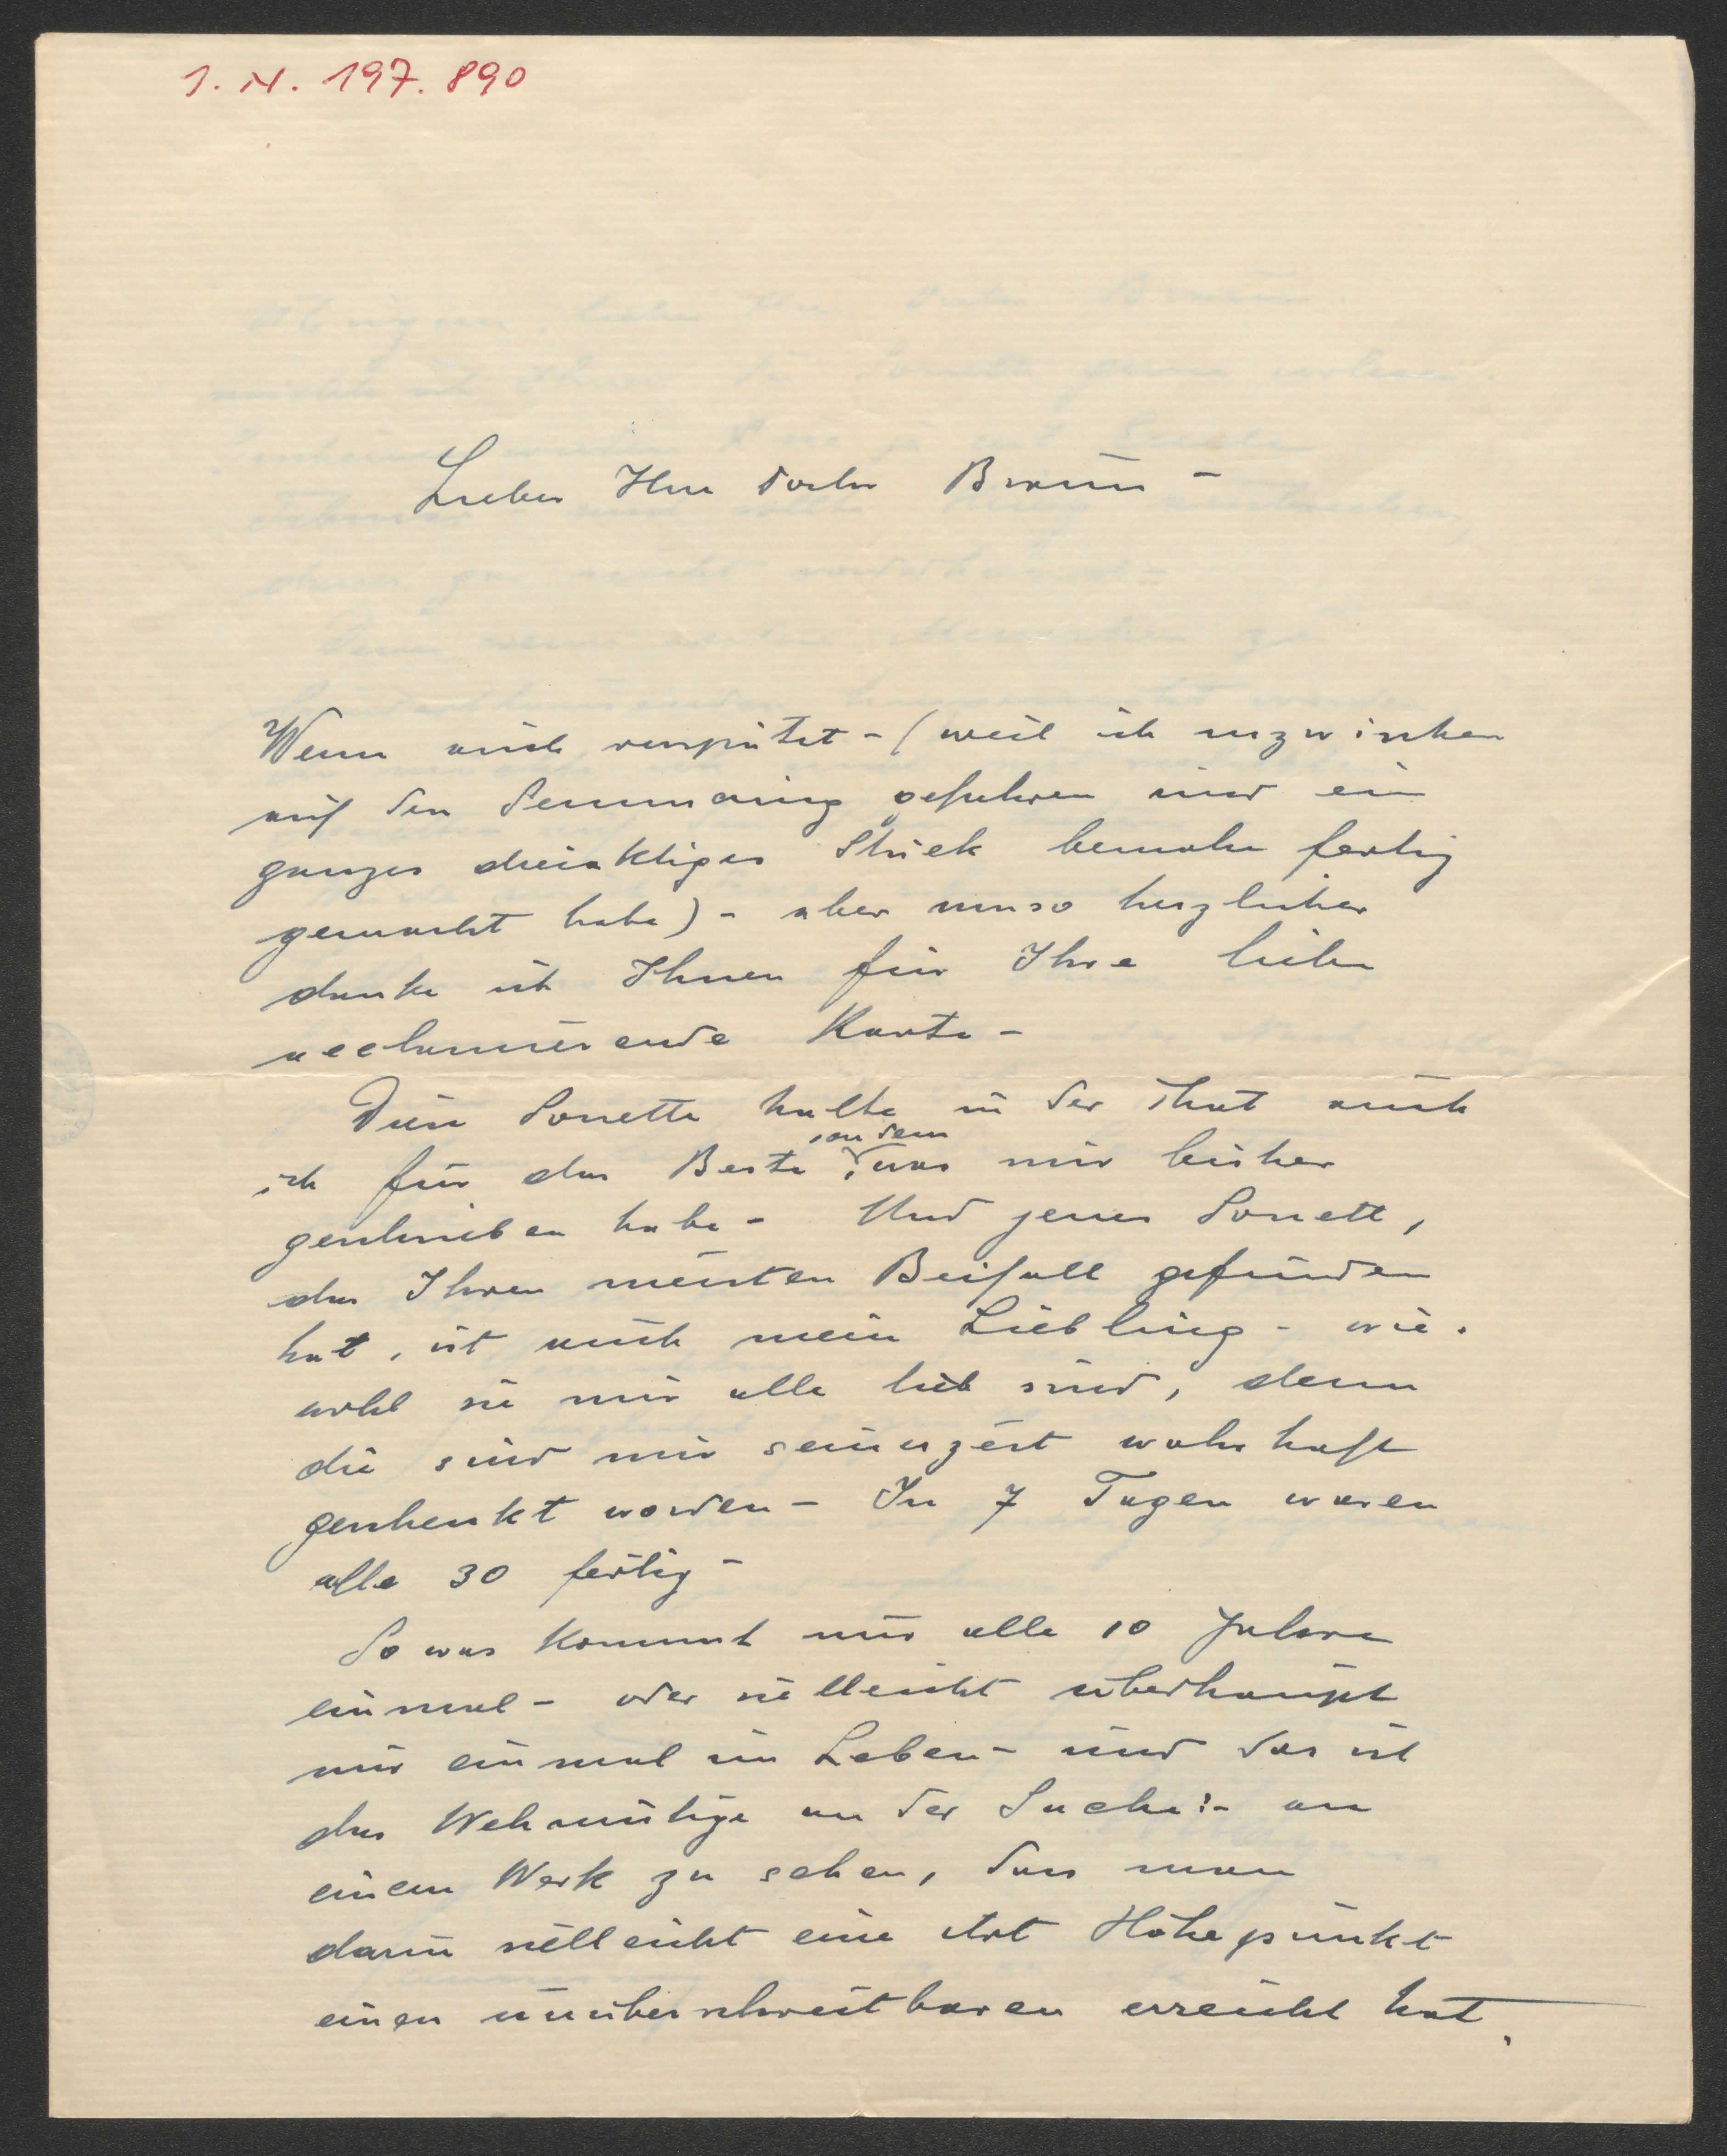 I. N. 197.890
Lieber Herr Doctor Braun –
Wenn auch verspätet – (weil ich inzwischen
auf den Semmering gefahren und ein
ganzes dreiaktiges Stück beinahe fertig
gemacht habe) – aber umso herzlicher
danke ich Ihnen für Ihre liebe
acclamierende Karte –
Diese Sonette halte in der That auch
ich für das Beste, von dem was mir bisher
geschrieben habe – Und jenes Sonett,
das Ihren meisten Beifall gefunden
hat, ist auch mein Liebling – wie-
wohl sie mir alle lieb sind, denn
die sind mir seinerzeit wahrhaft
geschenkt worden – In 7 Tagen waren
alle 30 fertig –
So was kommt nur alle 10 Jahre
einmal – oder vielleicht überhaupt
nur einmal im Leben – und das ist
das Wehmütige an der Sache: – an
einem Werk zu sehen, dass man
darin vielleicht eine Art Höhepunkt
einen unüberschreitbaren erreicht hat.